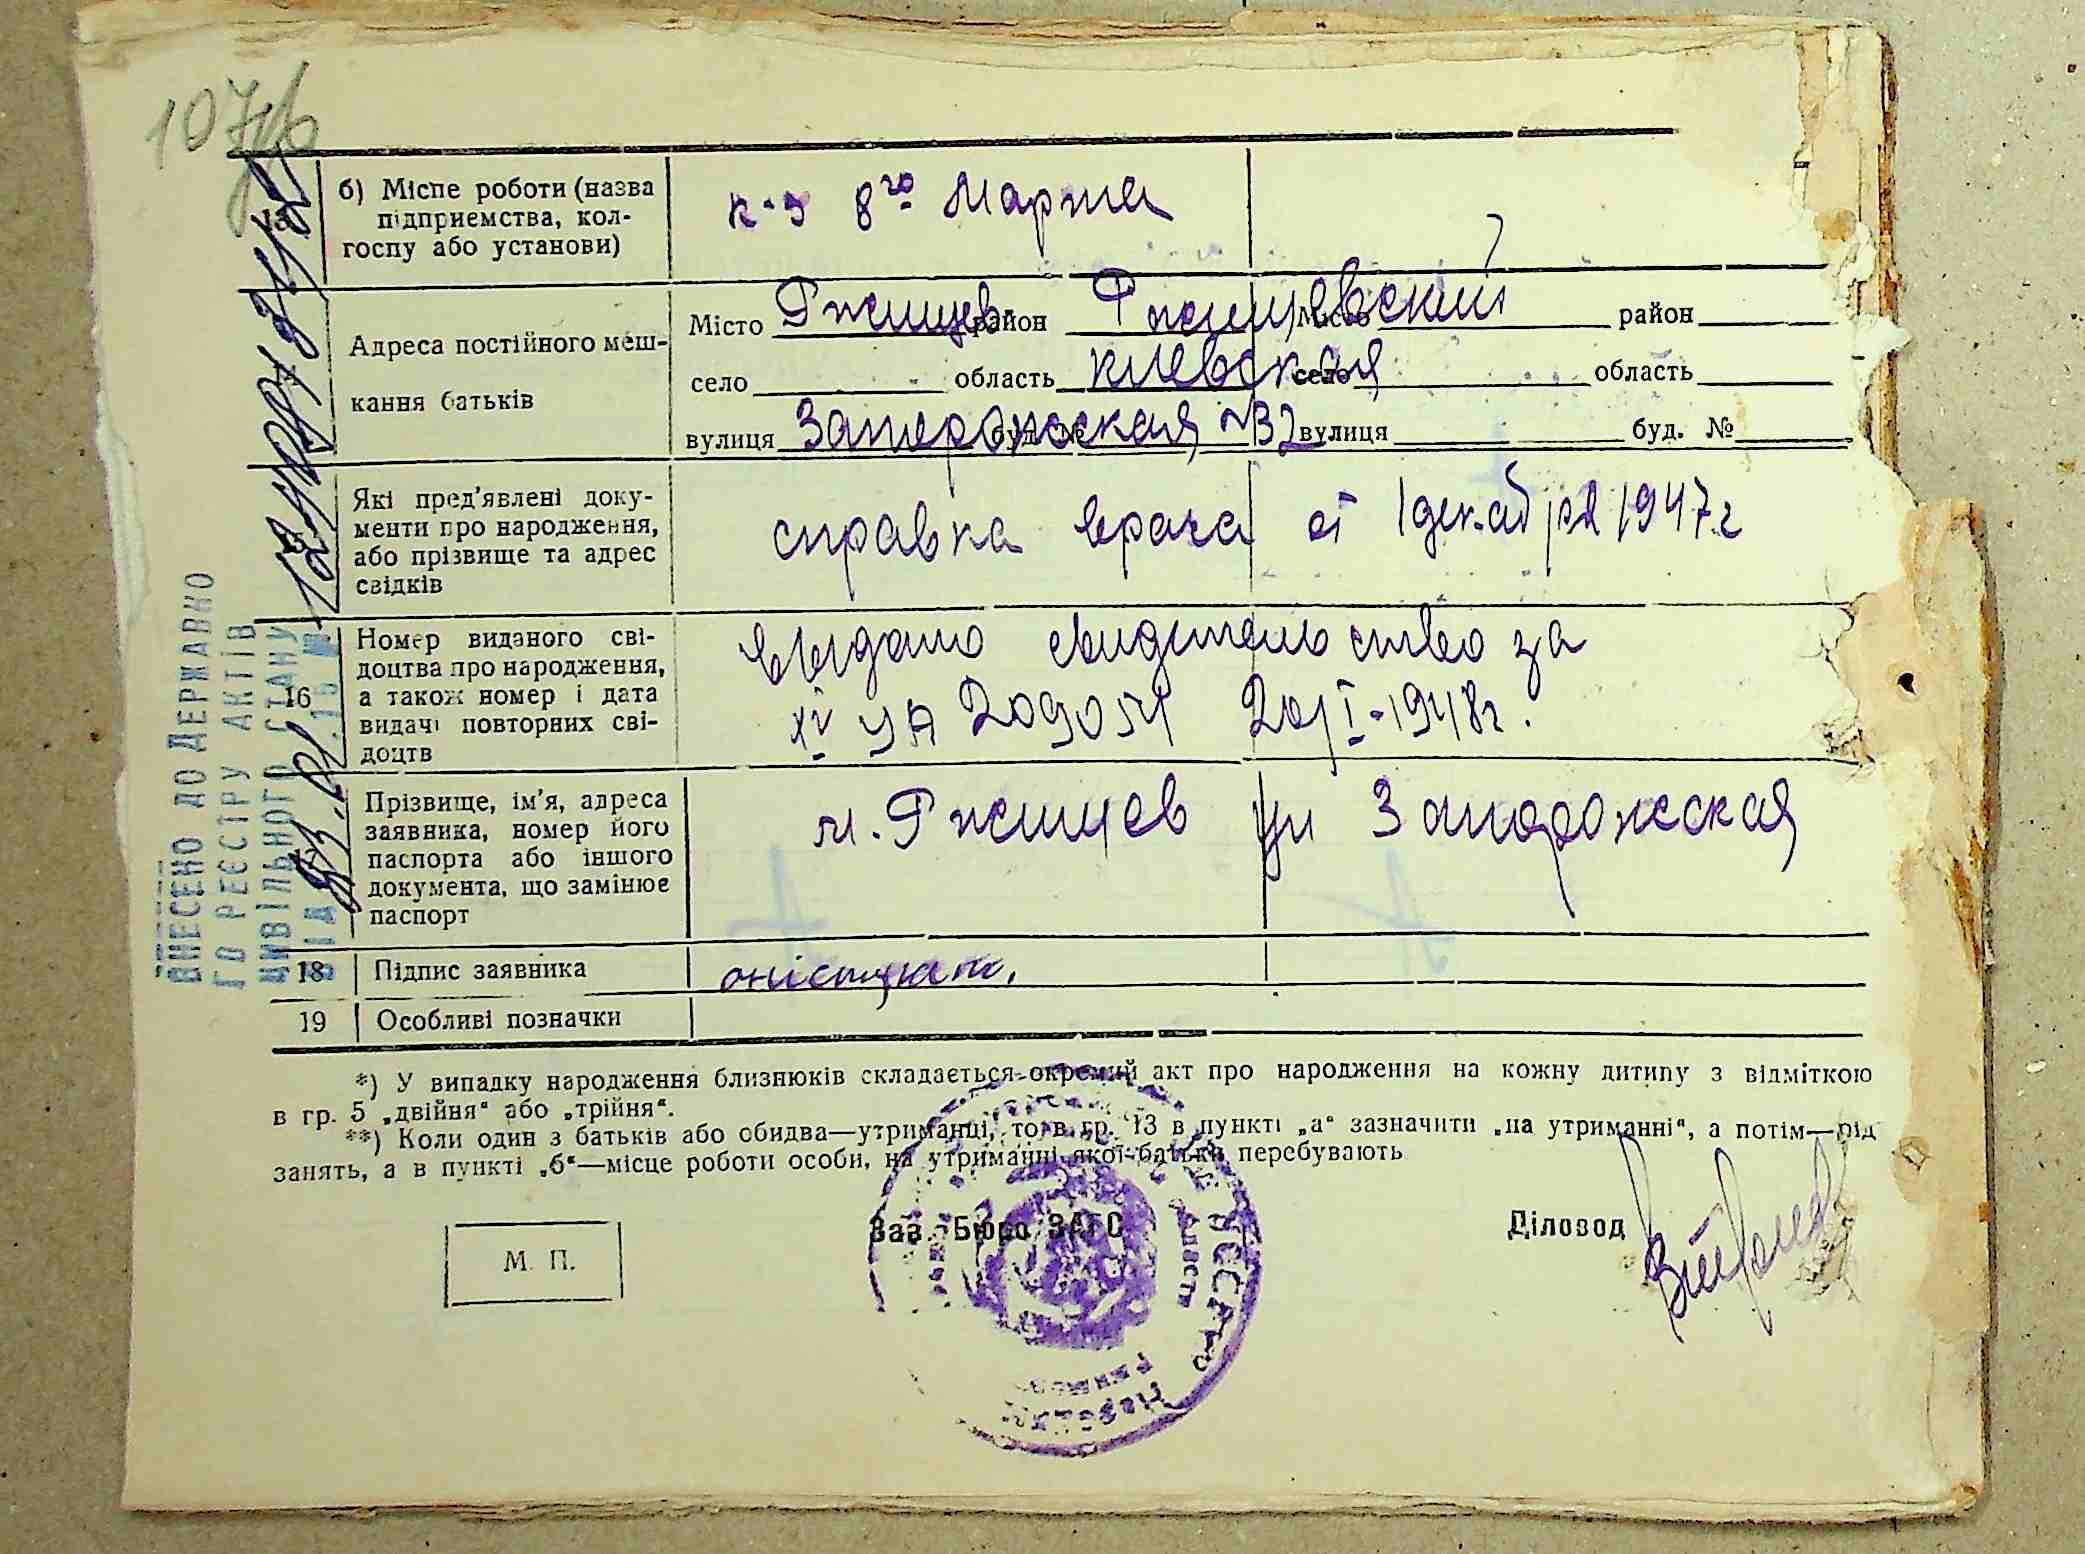 107
б) Місце роботи (назва
підприємства, кол-
госпу або установи)
к-з 8го Марта
Адреса постійного меш-
кання батьків
Місто Ржищев район Ржищевский Місто район
село область Киевская село область
вулиця Запорожская буд. № №32 вулиця буд. №
Які пред'явлені доку-
менти про народження,
або прізвище та адрес
свідків
справка врача от 1 декабря 1947 г
16
Номер виданого сві-
доцтва про народження,
а також номер і дата
видачі повторних сві-
доцтв
выдано свидетельство за
20/I-1948 г.
Прізвище, ім'я, адреса
заявника, номер його
паспорта або іншого
документа, що замінює
паспорт
м. Ржищев ул Запорожская
18 Підпис заявника
19 Особливі позначки
*) У випадку народження близнюків складається окремий акт про народження на кожну дитину з відміткою
в гр. 5 „двійня“ або „трійня“.
**) Коли один з батьків або обидва—утриманці, то в гр. 13 в пункті „а“ зазначити „на утриманні“, а потім—рід
занять, а в пункті „б“—місце роботи особи, на утриманні якої батьки перебувають
М. П.
Зав. Бюро ЗАГС
Діловод
ВНЕСЕНО ДО ДЕРЖАВНО
ГО РЕЄСТРУ АКТІВ
ЦИВІЛЬНОГО СТАНУ
ВІД